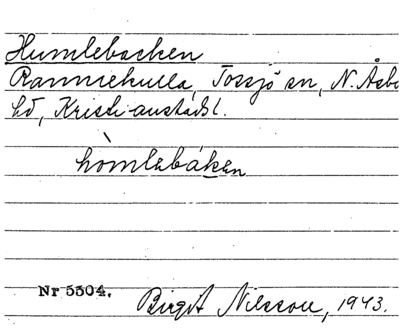 Humlebacken
Ranniekulla, Tossjö sn, N. Åsbo
hd, Kristianstads l.
hòmlebáken
Nr 5504. Birgit Nilsson, 1943.